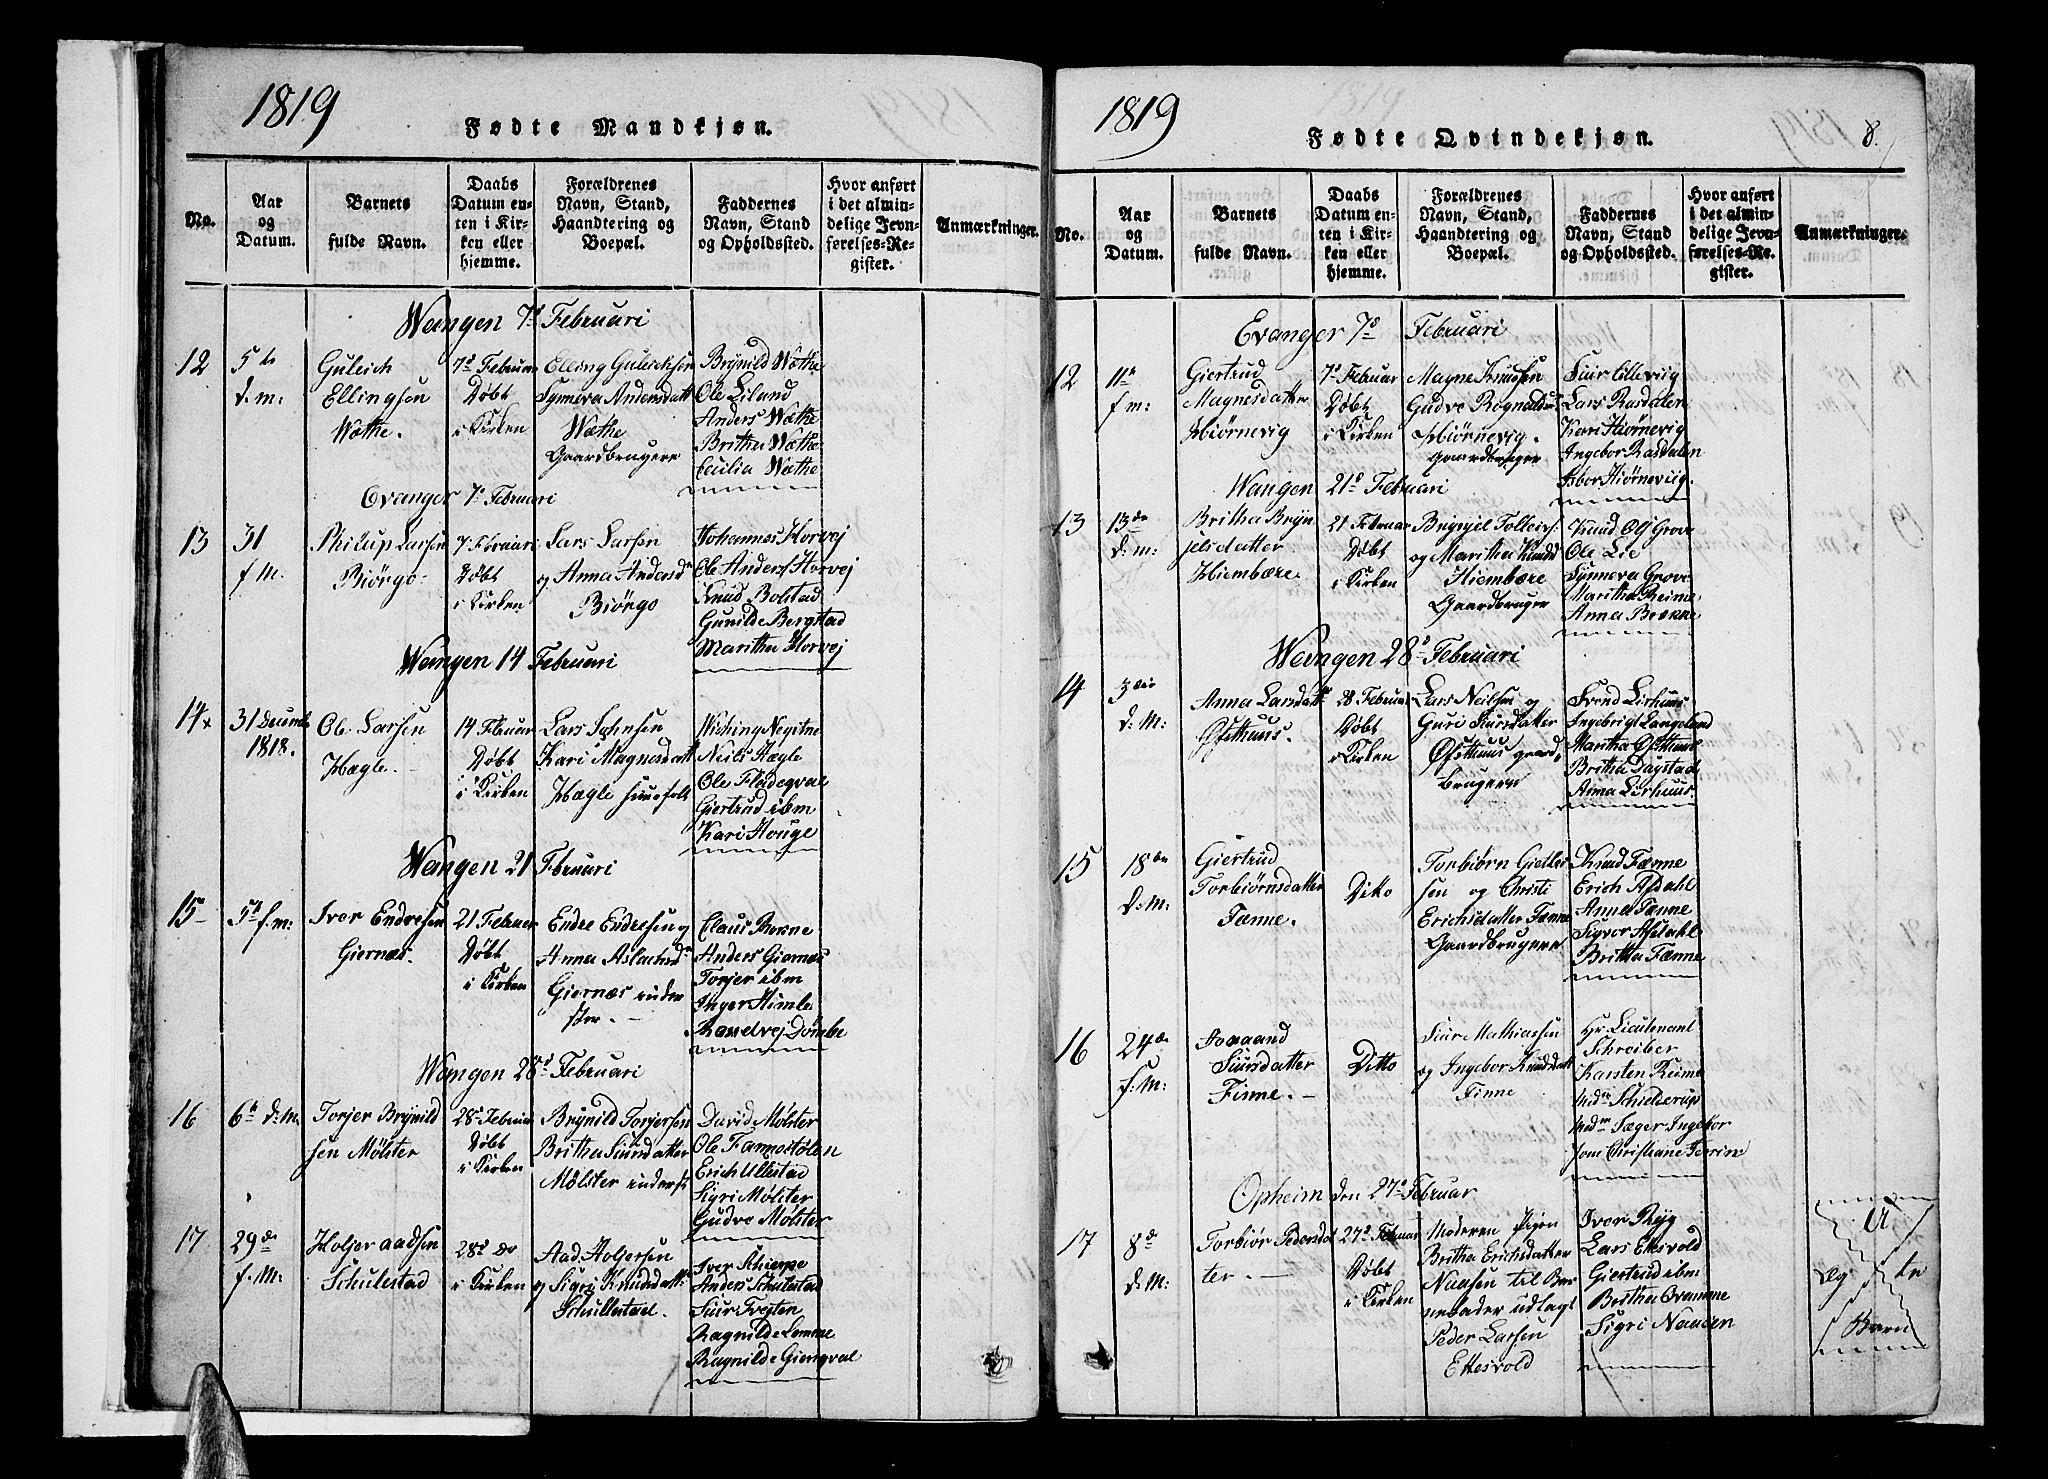 1819
Fødte Mandkjøn.
No.
Aar
og
Datum.
Barnets
fulde Navn.
Daabs
Datum en-
ten i Kir-
ken eller
hjemme.
Forældrenes
Navn, Stand,
Haandtering og
Boepæl.
Faddernes
Navn, Stand
og Opholdssted.
Hvor anført
i det almin-
delige Jevn-
førelses-Re-
gister.
Anmærkninger.
Wangen 7d Februari
12
5te
d. m:
Guleich
Ellingsen
Wæthe.
7d Februar
Døbt
i Kirken
Elling Guleichsen
Synneva Andersdatt
Wæthe
Gaardbrugere
Brynild Wæthe
Ole Liland
Anders Wæthe
Britha Wæthe
Cecilia Wæthe
Evanger 7d Februari
13
31
f. M.
Philup Larsen
Biørgo.
7 Februari
Døbt
i Kirken
Lars Larsen
og Anna Andersd
Biørgo
Johannes Horvej
Ole Anders Horvej
Knud Bolstad
Gunilde Bergstad
Maritha Horvej
Wangen 14 Februari
14x
31 Decemb
1818.
Ole Larsen
Hægle.
14 Februar
Døbt
i Kirken
Lars Johnsen
Kari Magnesdatt
Hægle huusfolk
Wiching Negitne
Neils Hægle
Ole Flådegval
Giertrud ibm
Kari Houge
Wangen 21 Februari
15
5te f. m:
Iver Endresen
Giernæs.
21 Februar
Døbt
i Kirken
Endre Endresen og
Anna Aslachsd
Giernæs inder
ster.
Claus
Anders Giernæs
Torjer ibm
Inger Himle
Randvej Dømbe
Wangen 28d Februari
16
6te d. M.
Torjer Brynild
sen Mølster
28d Februar
Døbt
i Kirken
Brynild Torjersen
Britha Siursdatter
Mølster inderst
David Mølster
Ole Fannestølen
Erich Ullestad
Sigri Mølster
Gudve Mølster
17
29de
f. M:
Holjer aadsen
Schulestad
28d do
i Kirken
Aad Holjersen
og Sigri Knudsdatt
Schullestad.
Iver Schierpe
Anders Schulestad
Siur Tvejten
Ragnilde Lemme
Ragnilde Giengval
1819
Fødte Qvindekjøn.
8.
No.
Aar
og
Datum.
Barnets
fulde Navn.
Daabs
Datum en-
ten i Kir-
ken eller
hjemme.
Forældrenes
Navn, Stand,
Haandtering og
Boepæl.
Faddernes
Navn, Stand
og Opholdssted.
Hvor anført
i det almin-
delige Jevn-
førelses-Re-
gister.
Anmærkninger.
Evanger 7d Februari
12
11te
f m:
Giertrud
Magnesdatter
Hiørnevig
7d Februar
Døbt
i Kirken
Magne Knudsen
Gudve Rognaldsd
Hiørnevig.
gaardbruger
Siur Lillevig
Lars Rasdalen
Kari Hiørnevig
Ingebor Rasdalen
Hiørneviig.
Wangen 21d Februari
13
13de
d. m:
Britha Bryn
jelsdatter
Hiembære.
21 Februar
Døbt
i Kirken
Brynjel Tolleivs:
og Maritha Knudsd
Hiembære
Gaardbruger
Knud Ols Grove
Ole Lie
Synneva Grove
Maritha Reime
Anna Brekke
Wangen 28d Februari
14
3die
d. M:
Anna Larsdatt
Øfsthuus.
28 Februar
Døbt
i Kirken
Lars Neilsen og
Guri Siursdatter
Øfsthuus gaard,
brugere
Svend Lirhuus
Ingebrigt Langeland
Maritha Øfsthuus
Britha Dagstad
Anna Lirhuus.
15
18de
d. M:
Giertrud
Torbiørnsdatter
Fænne.
Ditto
Torbiørn Gielles
sen og Christi
Erichsdatter Fænne
Gaardbrugere
Knud Fænne
Erich Afdahl
Anna Fænne
Sigvor Afdahl
Britha Fænne
16
24de
f. M:
Aaagaand
Siursdatter
Finne.
Ditto
Siur Mathiassen
og Ingebor Knudsdatt
Finne
Hr. Lieutenant
Schreiber
Karsten Reime
Mdm Schielderup
Mdm Sæger Ingebor
Jom Christiane Ferrin
Opheim den 27d Februar
17
8de
d. M:
Torbiør Pedersdat
ter.
27d Februar
Døbt
i Kirken
Moderen Pigen
Britha Erichsdatter
Naasen til Bar
nefader udlagt
Peder Larsen
Ettesvold
Iver Ryg
Lars Ettesvold
Giertrud ibm
Britha Qvamme
Sigri Naasen
U
æg te
Barn